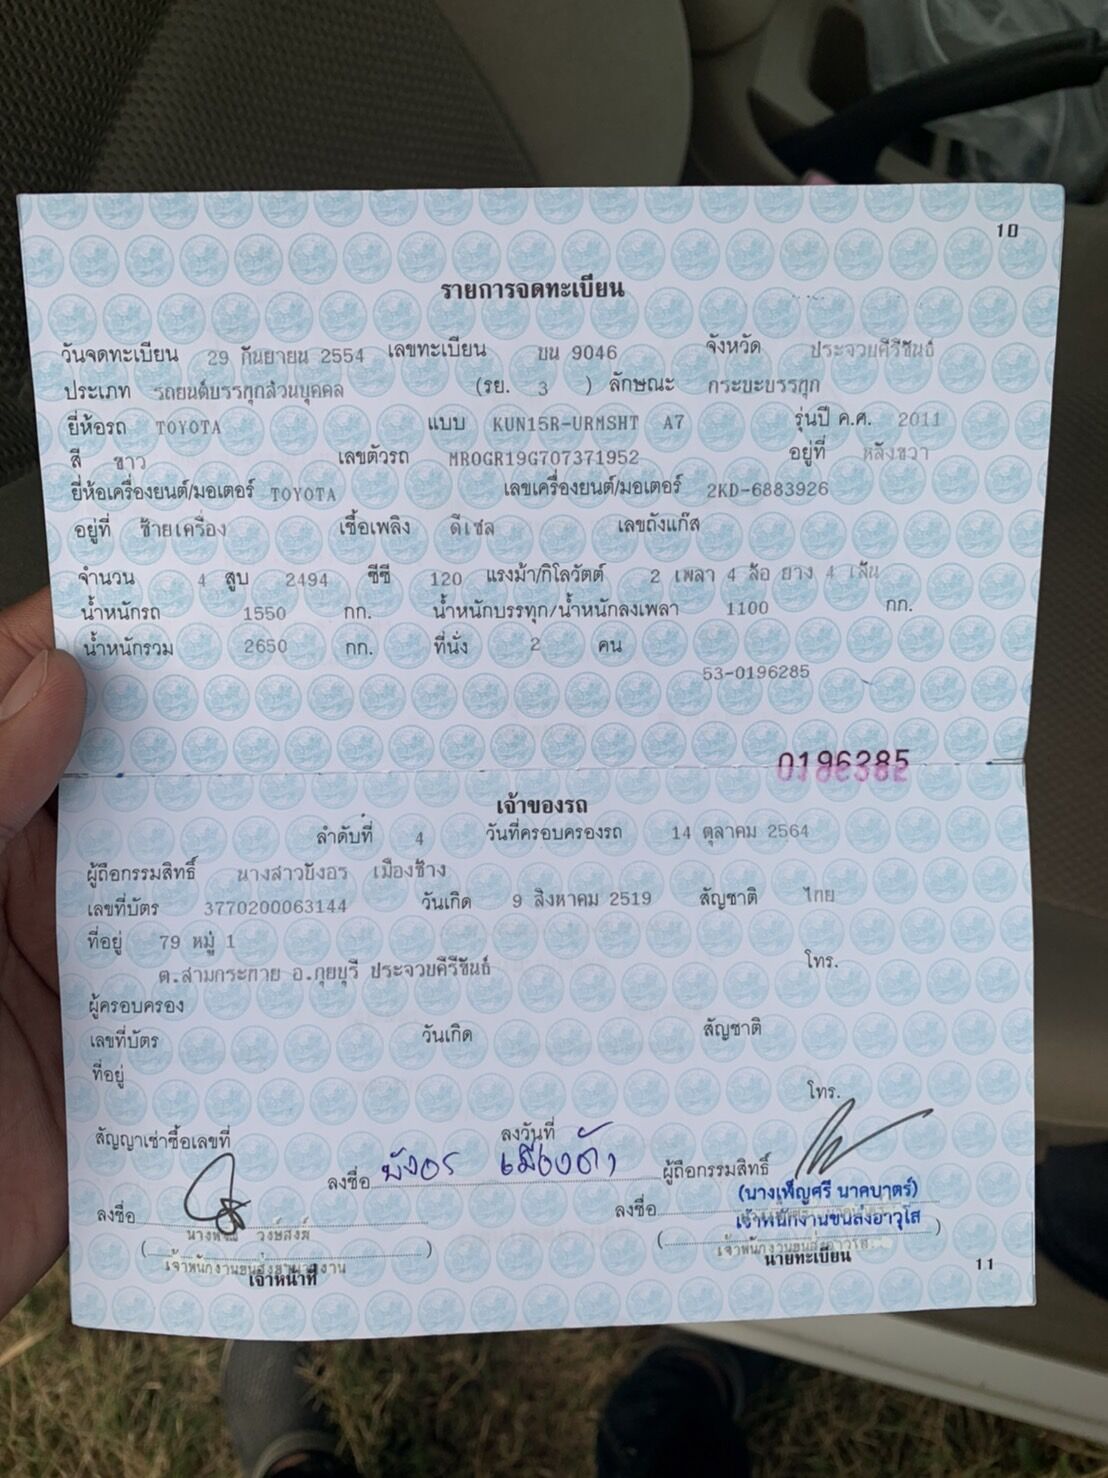 10
รายการจดทะเบียน
วันจดทะเบียน 29 กันยายน 2554 เลขทะเบียน บน 9046 จังหวัด ประจวบคีรีขันธ์
ประเภท รถยนต์บรรทุกส่วนบุคคล (รย. 3 ) ลักษณะ กระบะบรรทุก
ยี่ห้อรถ TOYOTA แบบ KUN15R-URMSHT A7 รุ่นปี ค.ศ. 2011
สี ขาว เลขตัวรถ MR0GR19G707371952 อยู่ที่ หลังขวา
ยี่ห้อเครื่องยนต์/มอเตอร์ TOYOTA เลขเครื่องยนต์/มอเตอร์ 2KD-6883926
อยู่ที่ ซ้ายเครื่อง เชื้อเพลิง ดีเซล เลขถังแก๊ส
จำนวน 4 สูบ 2494 ซีซี 120 แรงม้า/กิโลวัตต์ 2 เพลา 4 ล้อ ยาง 4 เส้น
น้ำหนักรถ 1550 กก. น้ำหนักบรรทุก/น้ำหนักลงเพลา 1100 กก.
น้ำหนักรวม 2650 กก. ที่นั่ง 2 คน
53-0196285
0196285
เจ้าของรถ
ลำดับที่ 4 วันที่ครอบครองรถ 14 ตุลาคม 2564
ผู้ถือกรรมสิทธิ์ นางสาวบังอร เมืองช้าง
เลขที่บัตร 3770200063144 วันเกิด 9 สิงหาคม 2519 สัญชาติ ไทย
ที่อยู่ 79 หมู่ 1
ต.สามกระทาย อ.กุยบุรี ประจวบคีรีขันธ์ โทร.
ผู้ครอบครอง
เลขที่บัตร วันเกิด สัญชาติ
ที่อยู่
โทร.
สัญญาเช่าซื้อเลขที่ ลงวันที่
ลงชื่อ บังอร ผู้ถือกรรมสิทธิ์
(นางเพ็ญศรี นาคบาตร์)
ลงชื่อ ลงชื่อ เจ้าพนักงานขนส่งอาวุโส
วงษ์สงฆ์
( ) ( )
เจ้าหน้าที่ นายทะเบียน
11